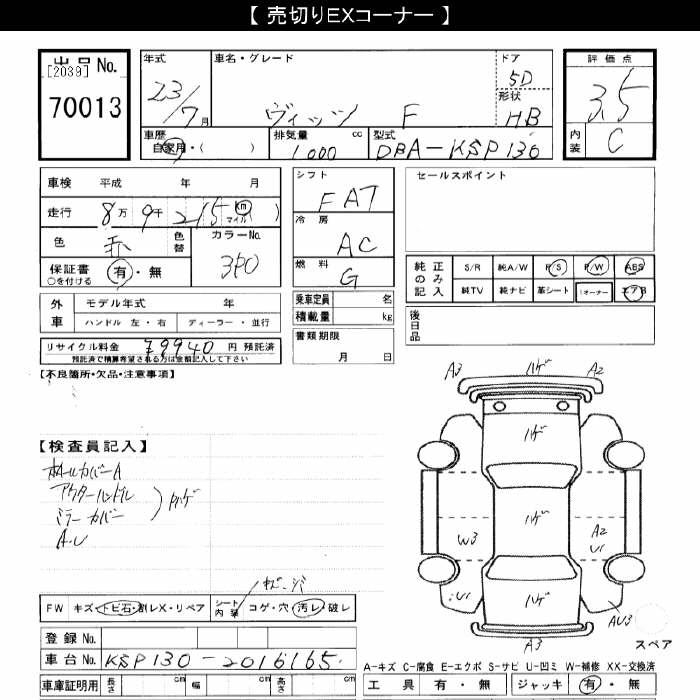 【 売切りEXコーナー 】
出品 No.
[2039]
70013
年式
23/7月
車名・グレード
ヴィッツ F
ドア
5D
形状
HB
評価点
3.5
内装
C
車歴
自家用・( )
排気量 cc
1000
型式
DBA-KSP130
車検 平成 年 月
走行 8万 9千 215 (km マイル)
色 赤 色替
カラーNo.
3P0
保証書 有・無
○を付ける
外車
モデル年式 年
ハンドル 左・右 ディーラー・並行
リサイクル料金 79940 円 預託済
預託済で精算希望される方は金額記入して下さい
シフト
FAT
冷房
AC
燃料
G
乗車定員 名
積載量 kg
書類期限
月 日
セールスポイント
純正のみ記入
S/R 純A/W P/S P/W ABS
純TV 純ナビ 革シート 1オーナー エアB
後日品
【不良箇所・欠品・注意事項】
【検査員記入】
ホイールカバーA
アウターハンドル
ミラーカバー
A.U
A3 ハゲ A2
ハゲ
ハゲ
W3
A2
U1
U1
ハゲ
AU3
A3
スペア
FW キズ・トビ石・割レX・リペア シート内張 コゲ・穴・汚レ・破レ
登録 No.
車台 No. KSP130-2016165
車庫証明用 長さ cm 幅 cm 高さ cm
A-キズ C-腐食 E-エクボ S-サビ U-凹ミ W-補修 XX-交換済
工具 有・無 ジャッキ 有・無